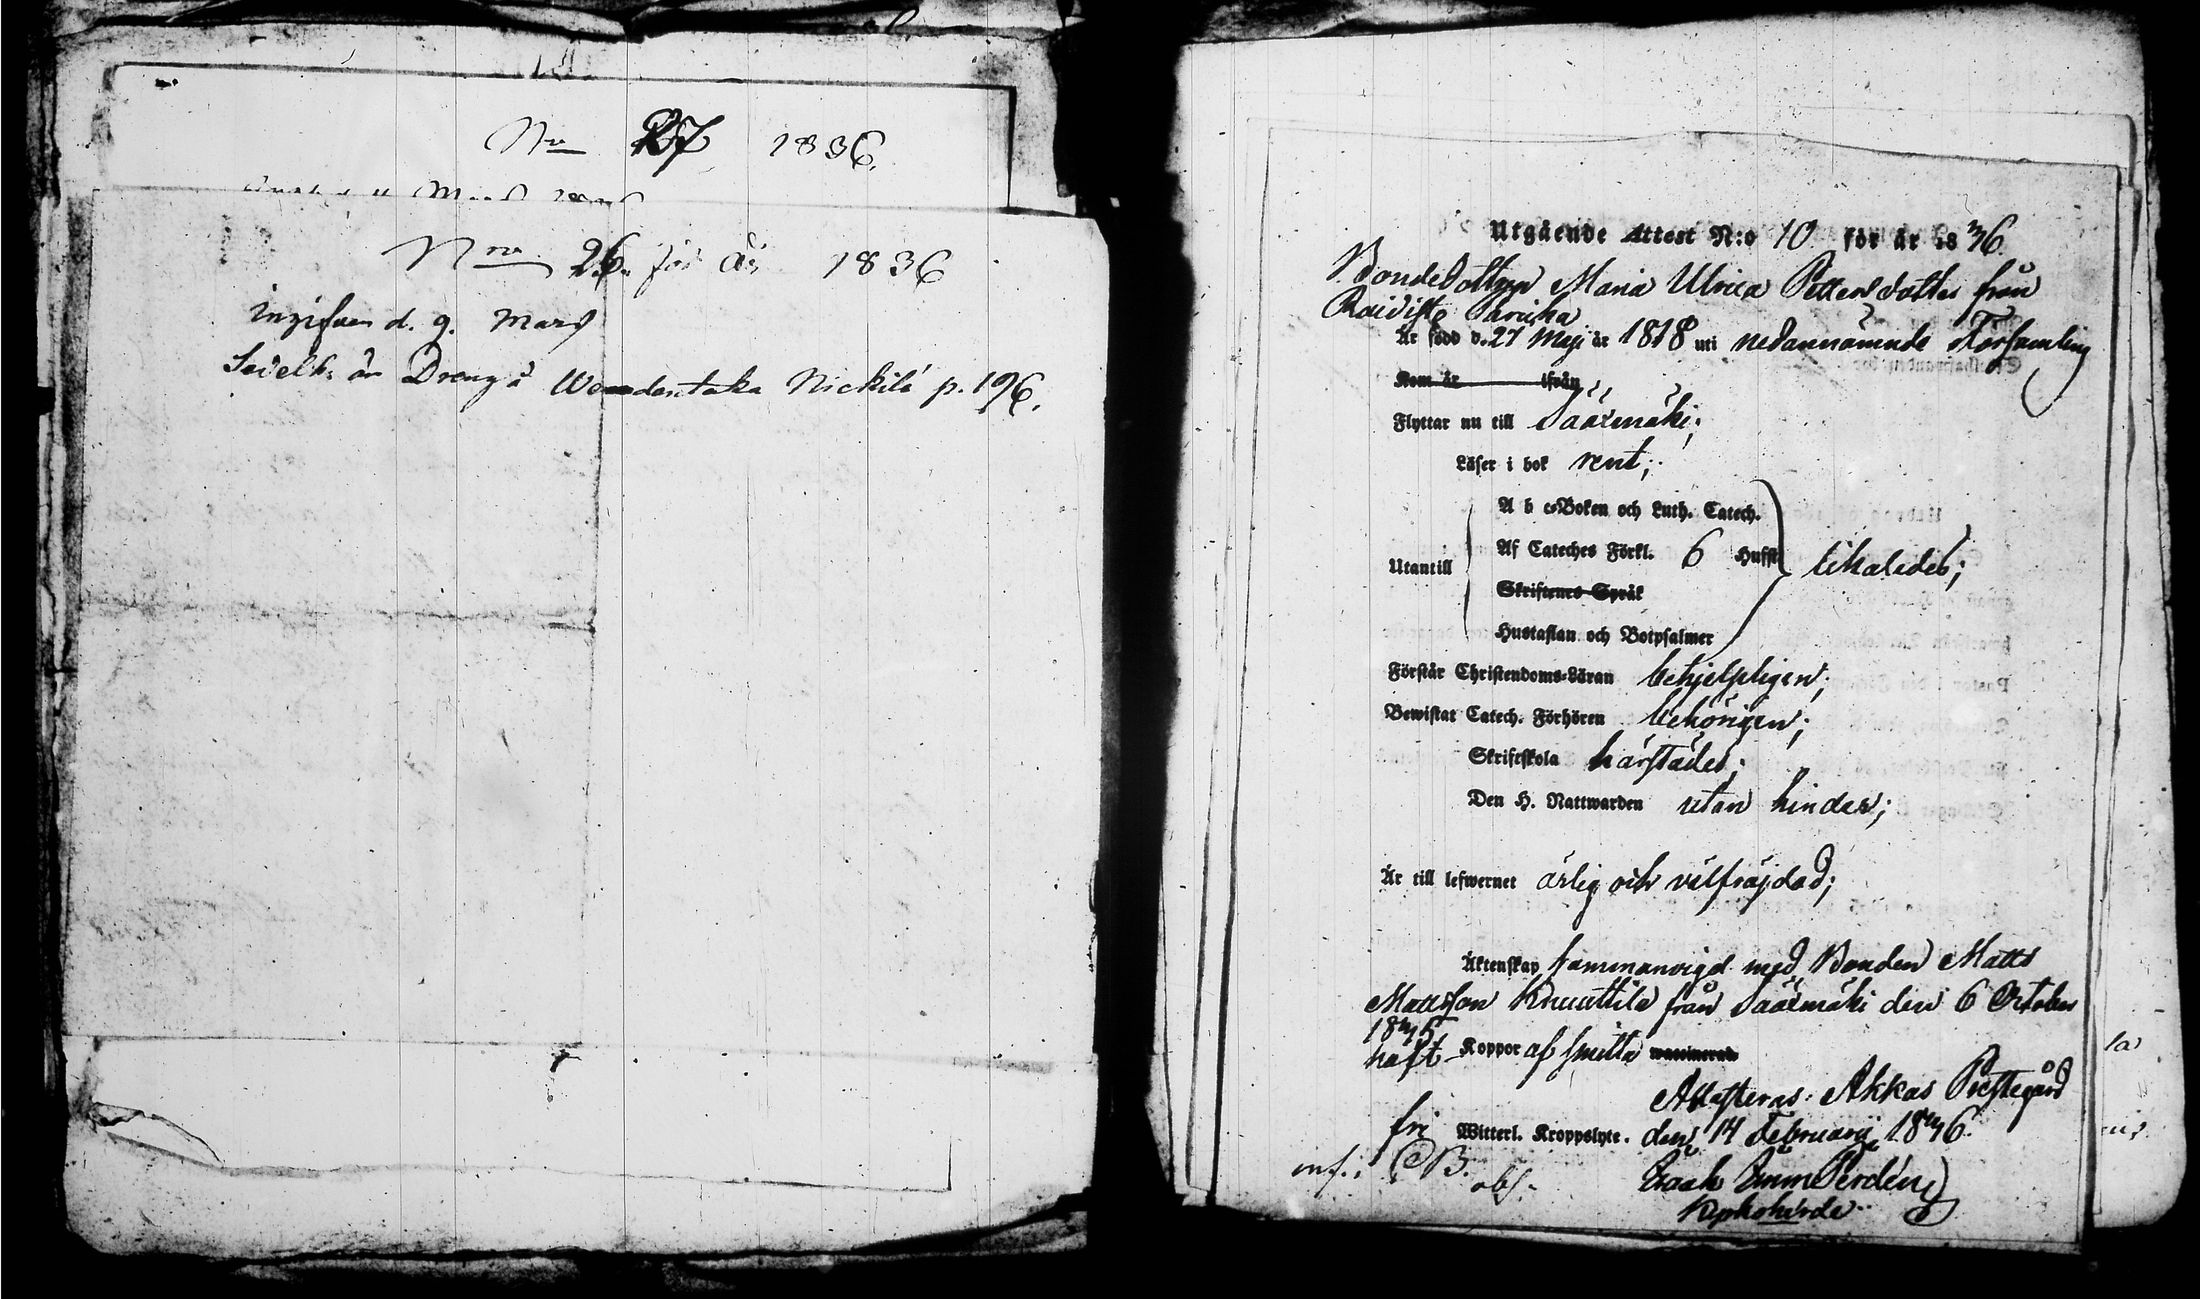 Nro 27 1836.
Nro 26. för år 1836
Ingifven d. 9. Mars
Sedelb. är Dreng å Wendentaka Nickilä p. 196.
Utgående Attest N:o 10 för år 1836.
Bondedottren Maria Ulrica Pettersdotter från
Raidiste Saricka
Är född d. 27 Maji år 1818 uti nedannämnde Församling
Kom år ifrån
Flyttar nu till Säärmäki;
Läser i bok rent;
A b c-Boken och Luth. Catech.
Utantill Af Cateches Förkl. 6 Hufst. likaledes;
Skriftenes Språk
Hustaflan och Botpsalmer
Förstår Christendoms-Läran behjelpligen;
Bewistat Catech. Förhören behörigen;
Skriftskola härstädes;
Den H. Nattwarden utan hinder;
Är till lefwernet ärlig och välfräjdad;
Äktenskap sammanvigd med Bonden Matts
Mattsson Knuuttila från Säärmäki den 6 October
1835
haft Koppor af smitta waccinerad
Attesteras. Akkas Prestegård
fri Witterl. Kroppslyte. den 14 Februarii 1836.
inf.: B. abs. Isaak Emm Perdén
Kyrkoherde